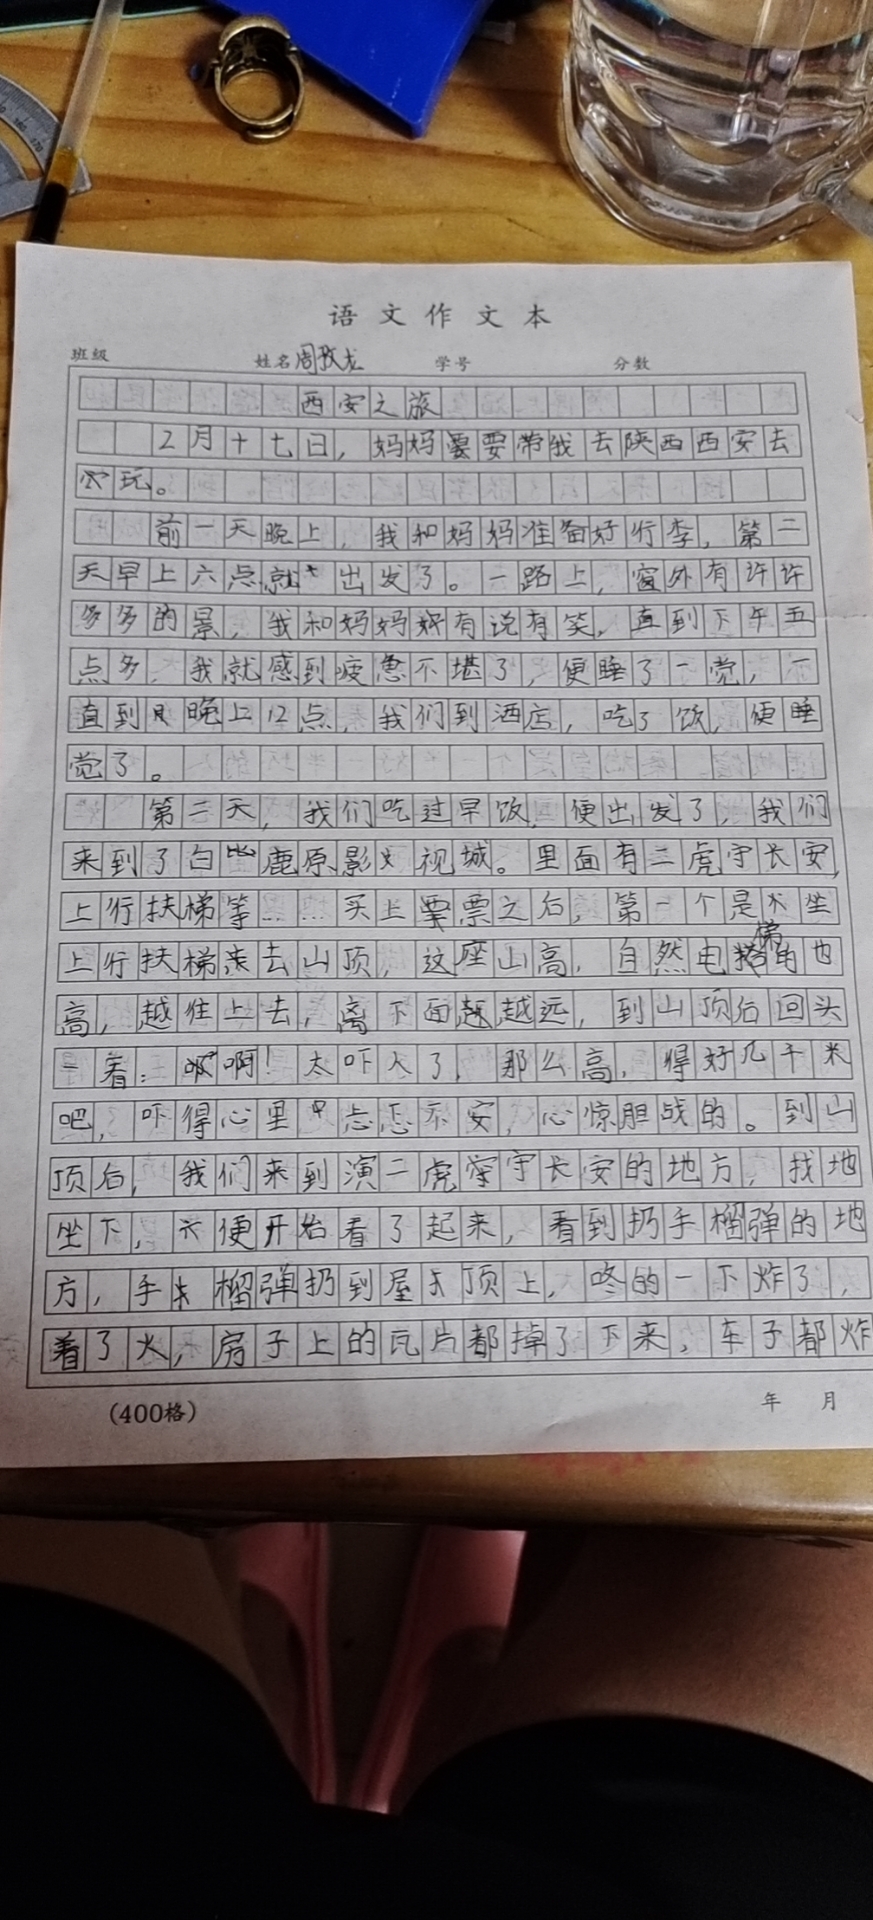 语文作文本
班级 姓名 周 龙 学号 分数
西安之旅
2月十七日，妈妈要带我去陕西西安去
玩。
前一天晚上，我和妈妈准备好行李，第二
天早上六点就出发了。一路上，窗外有许许
多多的景，我和妈妈有说有笑，直到下午五
点多，我就感到疲惫不堪了，便睡了一觉，一
直到晚上12点，我们到酒店，吃了饭，便睡
觉了。
第二天，我们吃过早饭，便出发了，我们
来到了白鹿原影视城。里面有二虎守长安，
上行扶梯等……买上票之后，第一个是坐
上行扶梯去山顶，这座山高，自然电梯的也
高，越往上去，离下面越越远，到山顶后回头
一看：啊！太吓人了，那么高，得好几千米
吧，吓得心里忐忑不安，心惊胆战的。到山
顶后，我们来到演二虎守长安的地方，找地
坐下，便开始看了起来，看到扔手榴弹的地
方，手榴弹扔到屋顶上，咚的一下炸了，
着了火，房子上的瓦片都掉了下来，车子都炸
(400格) 年 月